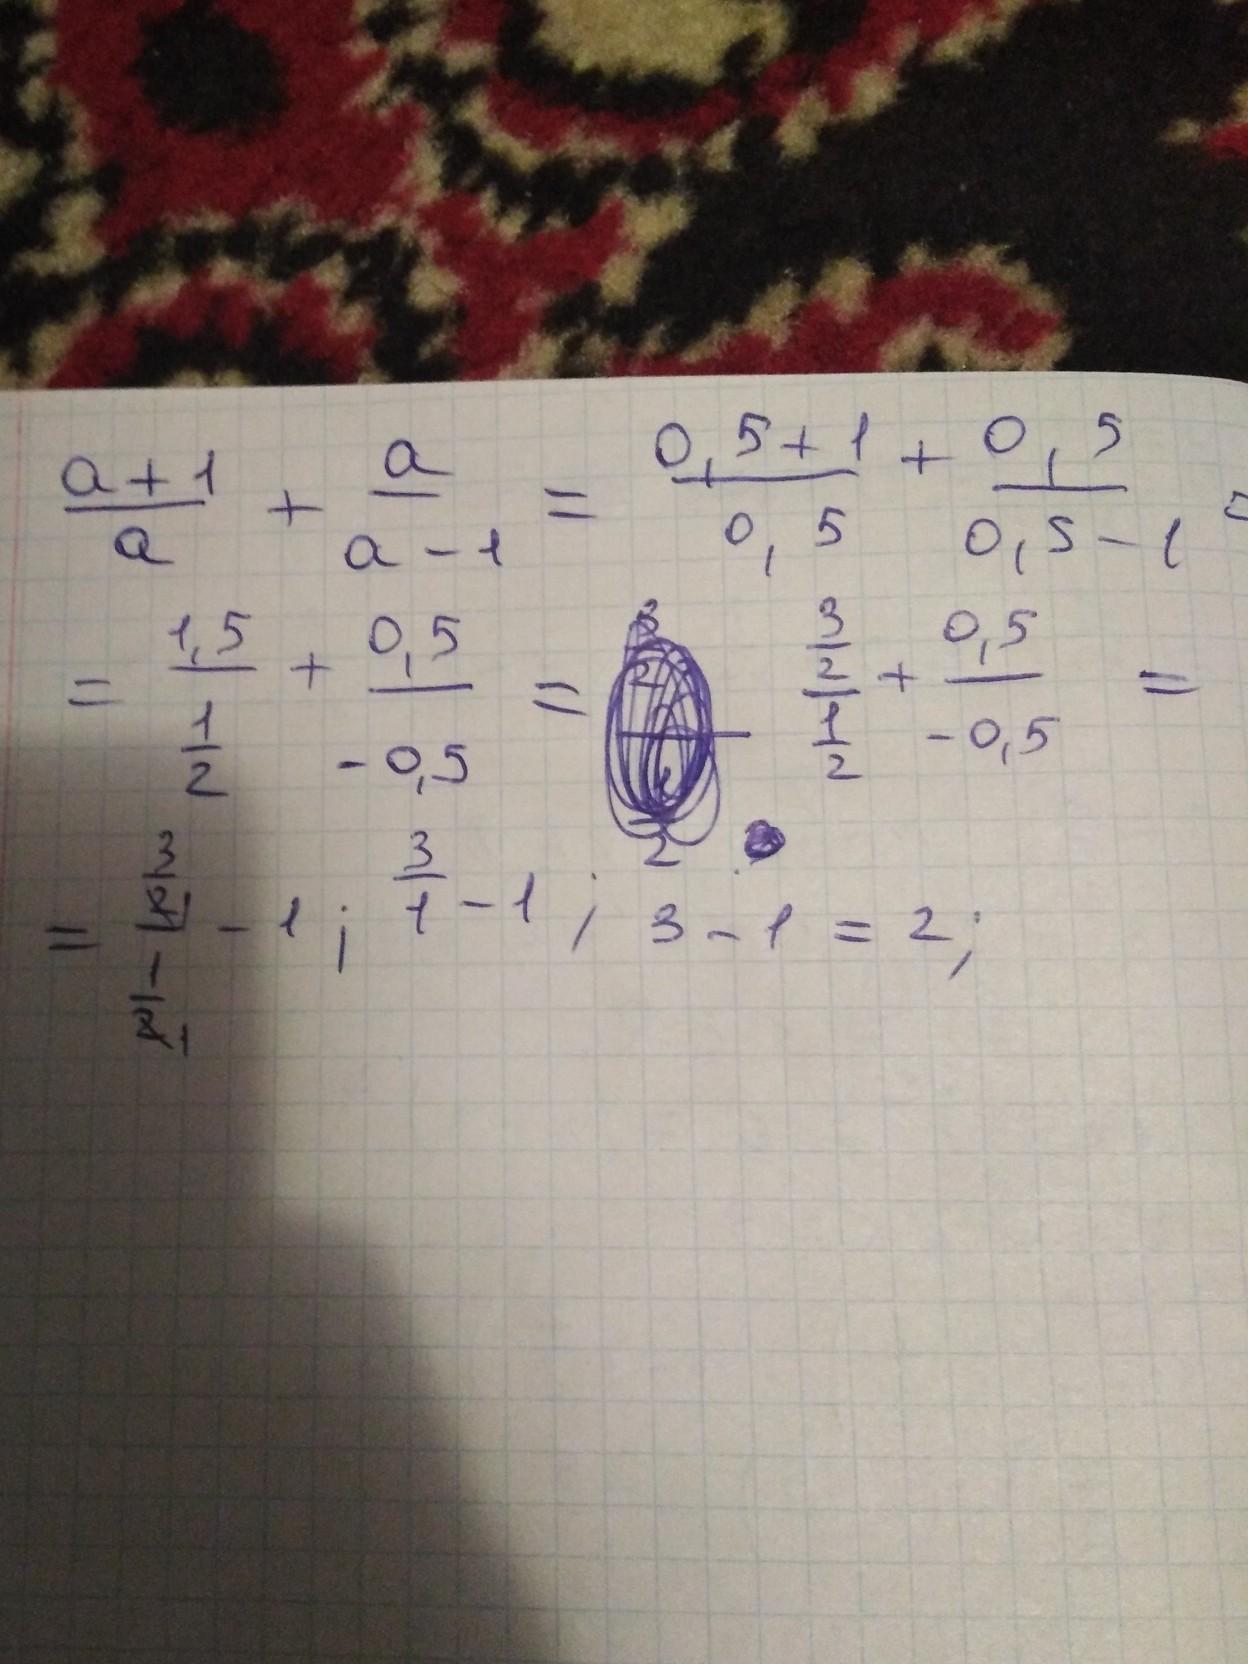 (a+1)/a + a/(a-1) = (0,5+1)/(0,5) + (0,5)/(0,5-1) =
= (1,5)/(1/2) + (0,5)/(-0,5) = (3/2)/(1/2) + (0,5)/(-0,5) =
= (3/2)/(1/2) - 1 ; 3/1 - 1 ; 3 - 1 = 2;